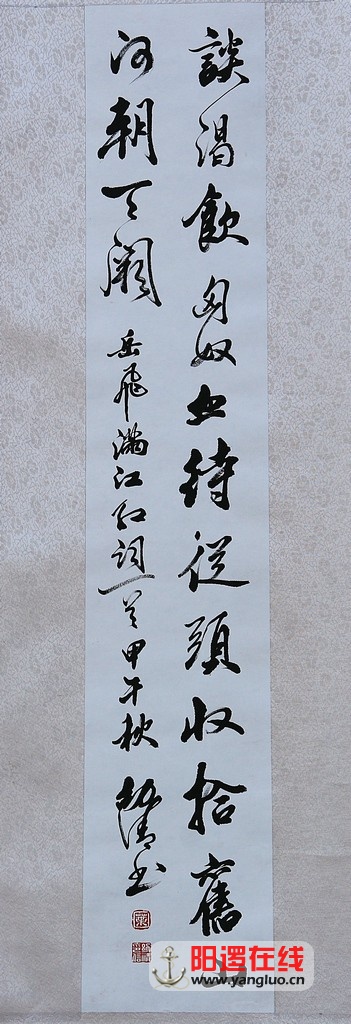 談渴飲匈奴血待從頭收拾舊山
河朝天闕
岳飛滿江紅詞一首甲午秋
書
阳逻在线
www.yangluo.cn